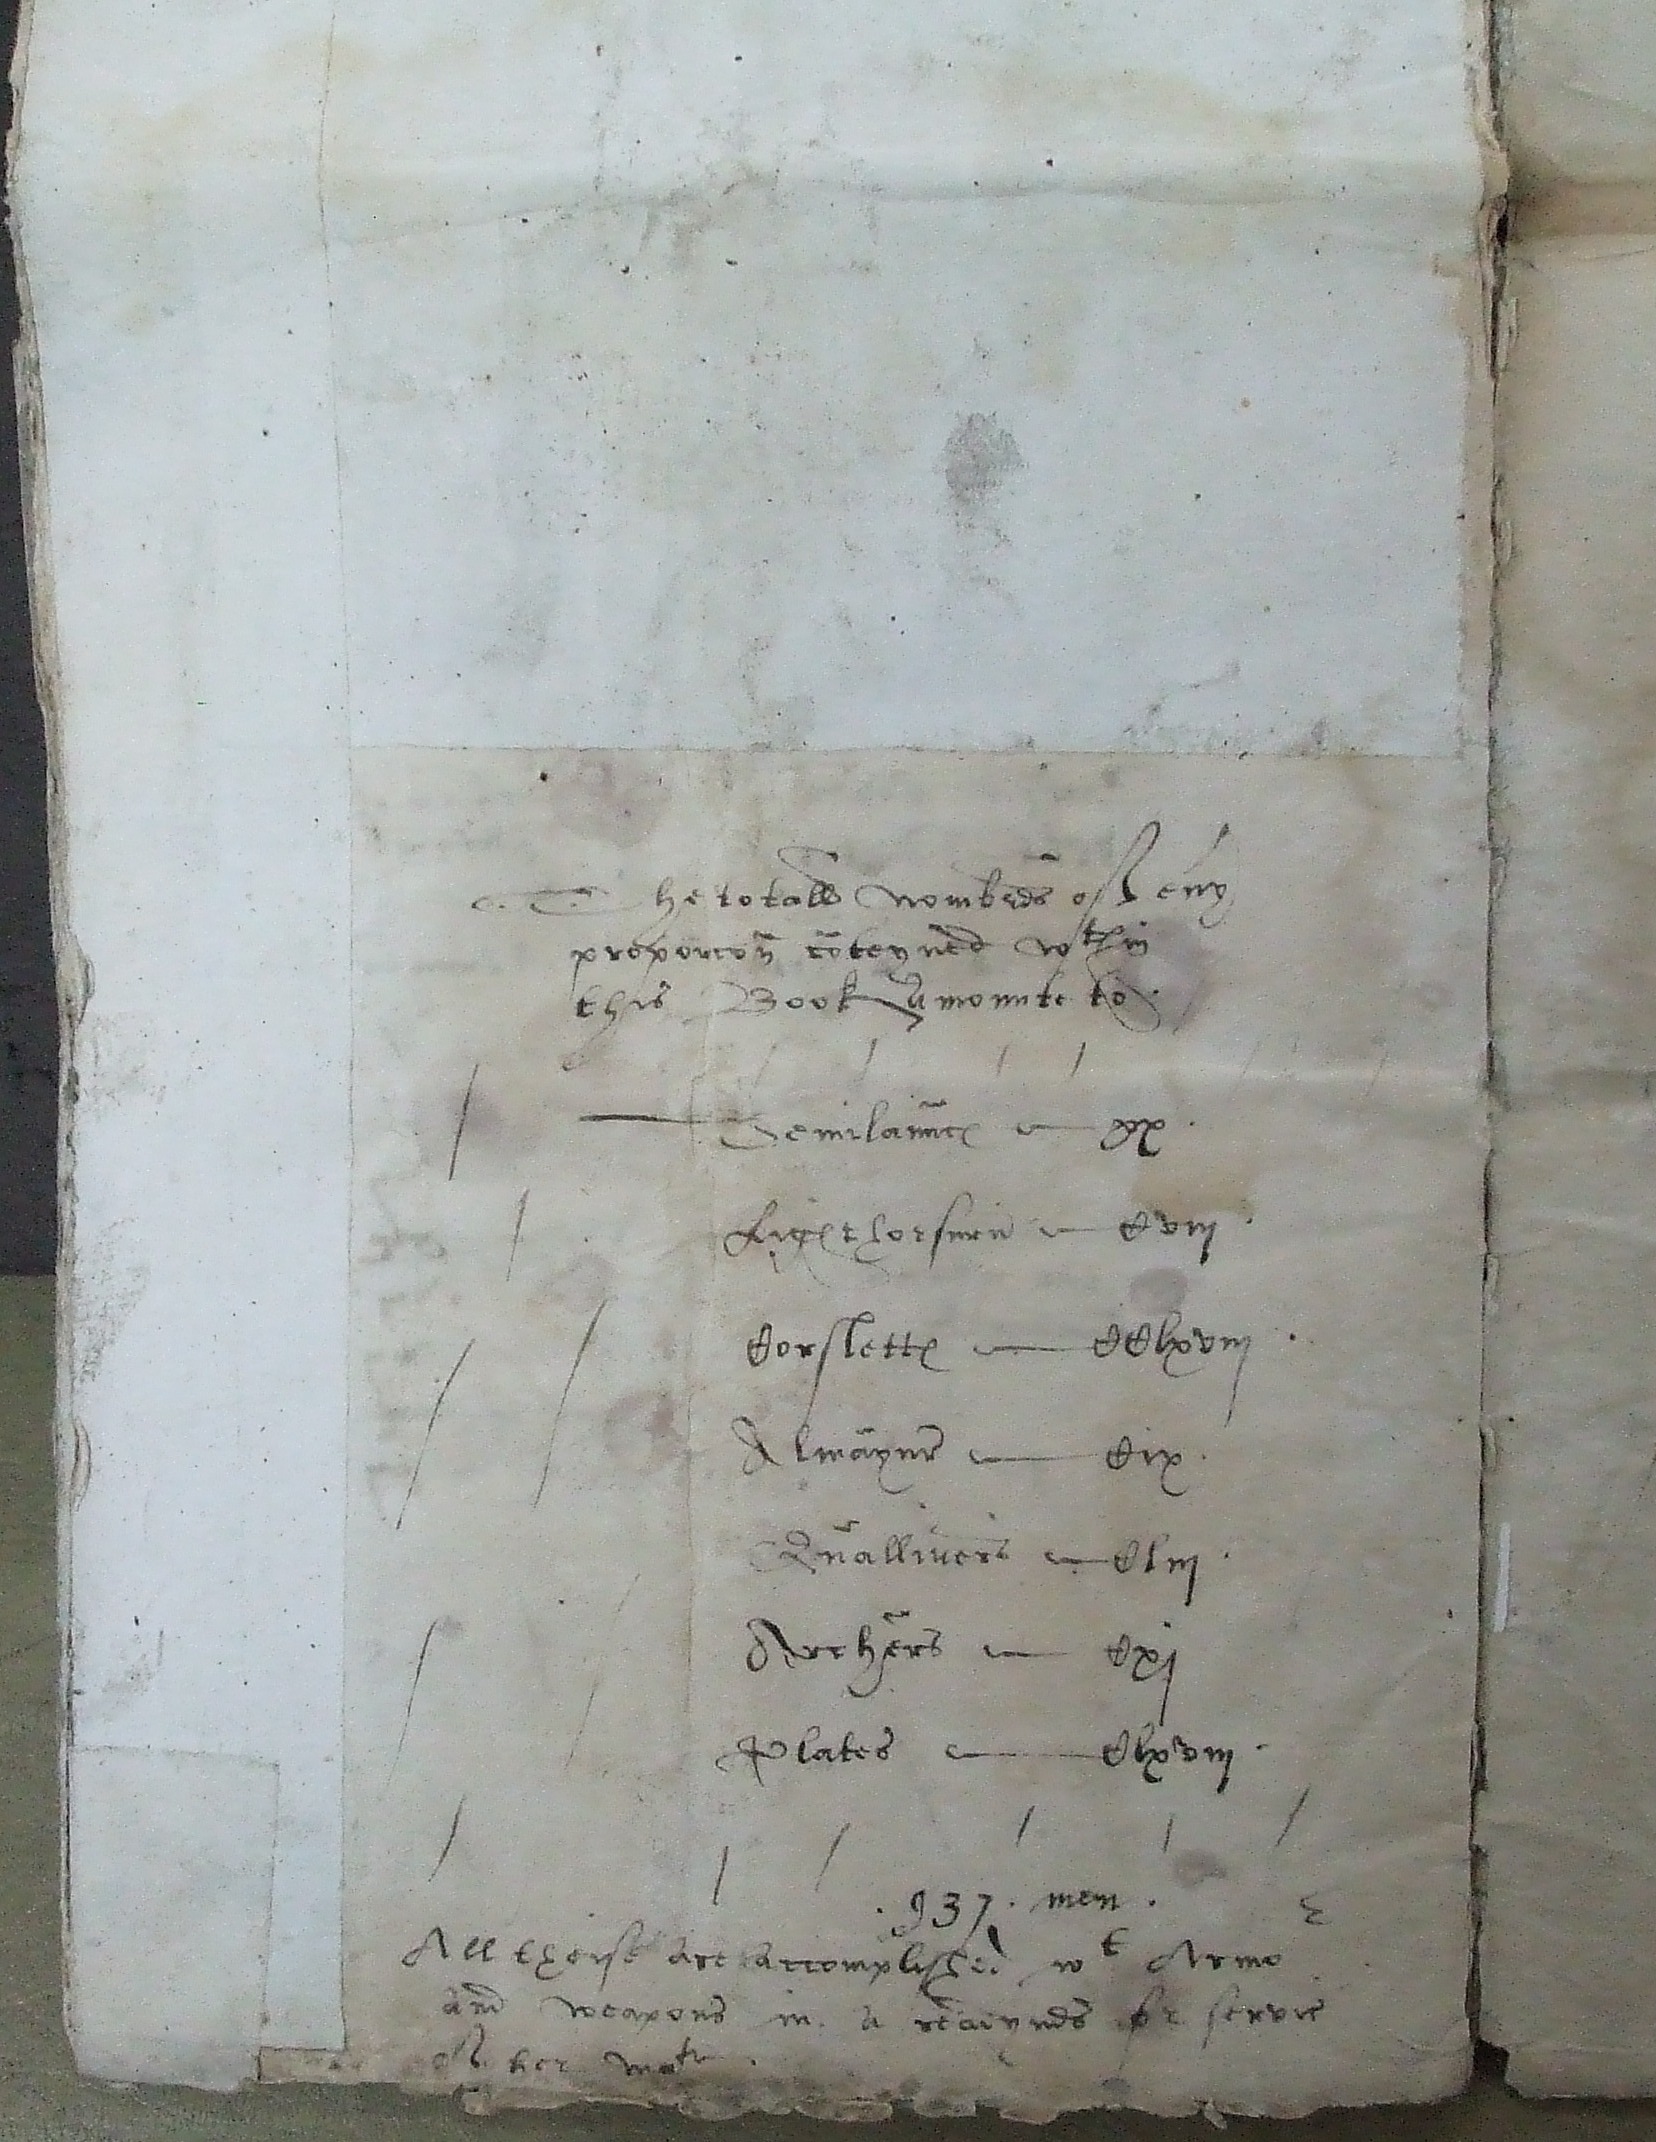 The totall nombers of eny
proporcon conteyned wthin
this Book amounte to
Demilances — xx
Light horsmen — Cviij
Corsletts — CClxviij
Almayns — Cix
Quallivers — Cliij
Archers — Cxj
Plates — Clxviij
937 men
All theise are accomplished wt Armo
and weapons in a reddynes for servic
of her Matie